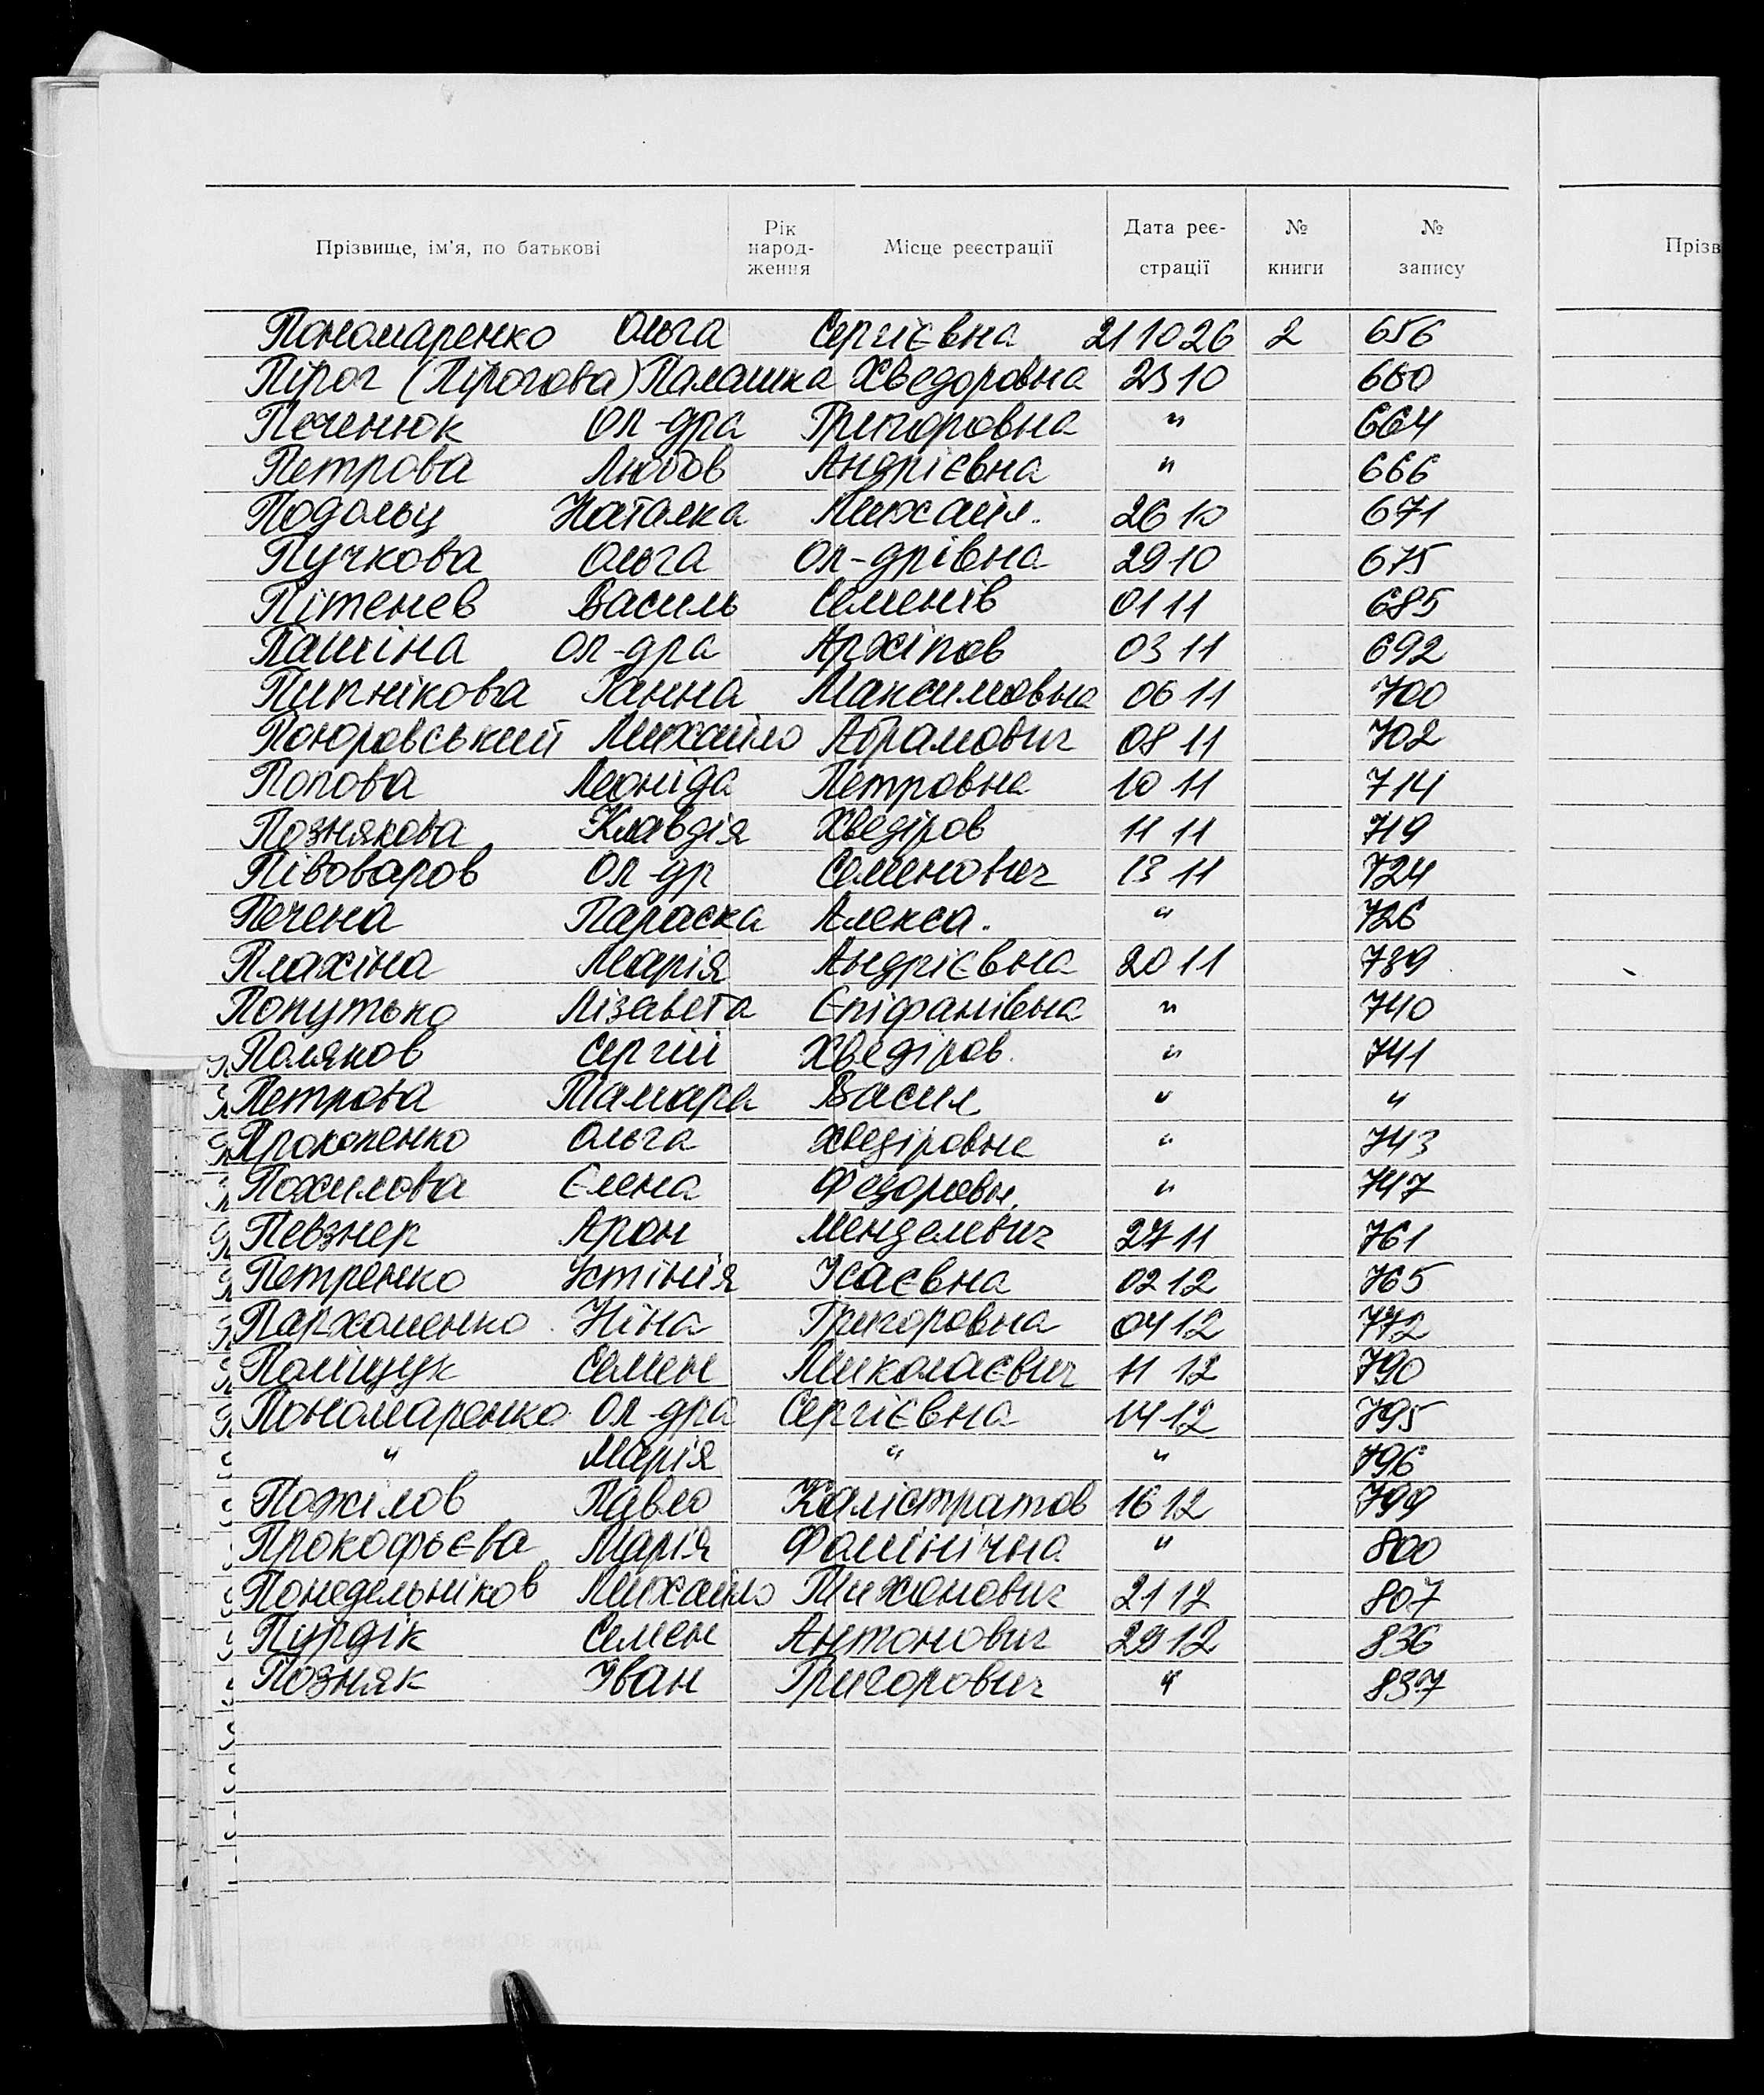 Прізвище, ім'я, по батькові Рік народ-ження Місце реєстрації Дата реє-страції № книги № запису Прізв
Пономаренко Ольга Сергієвна 21 10 26 2 656
Пірог (Пірогова) Палашка Хведоровна 23 10 660
Печенюк Ол-дра Григоровна " 664
Петрова Любов Андрієвна " 666
Подольц Наталка Михайл. 26 10 671
Пучкова Ольга Ол-дрівна 29 10 675
Пітенев Василь Семенів 01 11 685
Пашіна Ол-дра Архіпов 03 11 692
Пипнікова Ганна Максимовна 06 11 700
Поюровський Михайло Абрамович 08 11 702
Попова Леоніда Петровна 10 11 714
Познякова Клавдія Хведіров 11 11 719
Півоваров Ол-др Семенович 13 11 724
Печена Параска Алекса. " 726
Плахіна Марія Андрієвна 20 11 739
Попутько Лізавета Єпіфанівна " 740
Поляков Сергій Хведіров. " 741
Петрова Тамара Васил " "
Прокопенко Ольга Хведіровна " 743
Похилова Єлена Федоровн. " 747
Певзнер Арон Менделевич 27 11 761
Петренко Устінія Ісаєвна 02 12 765
Пархоменко Ніна Григоровна 04 12 772
Поліщук Семен Миколаєвич 11 12 790
Пономаренко Ол-дра Сергієвна 14 12 795
" Марія " " 796
Пожілов Павло Калістратов 16 12 799
Прокофьєва Марія Фомінічна " 800
Понедельніков Михайло Тихонович 21 12 807
Пурдік Семен Антонович 29 12 836
Позняк Іван Григорович " 837